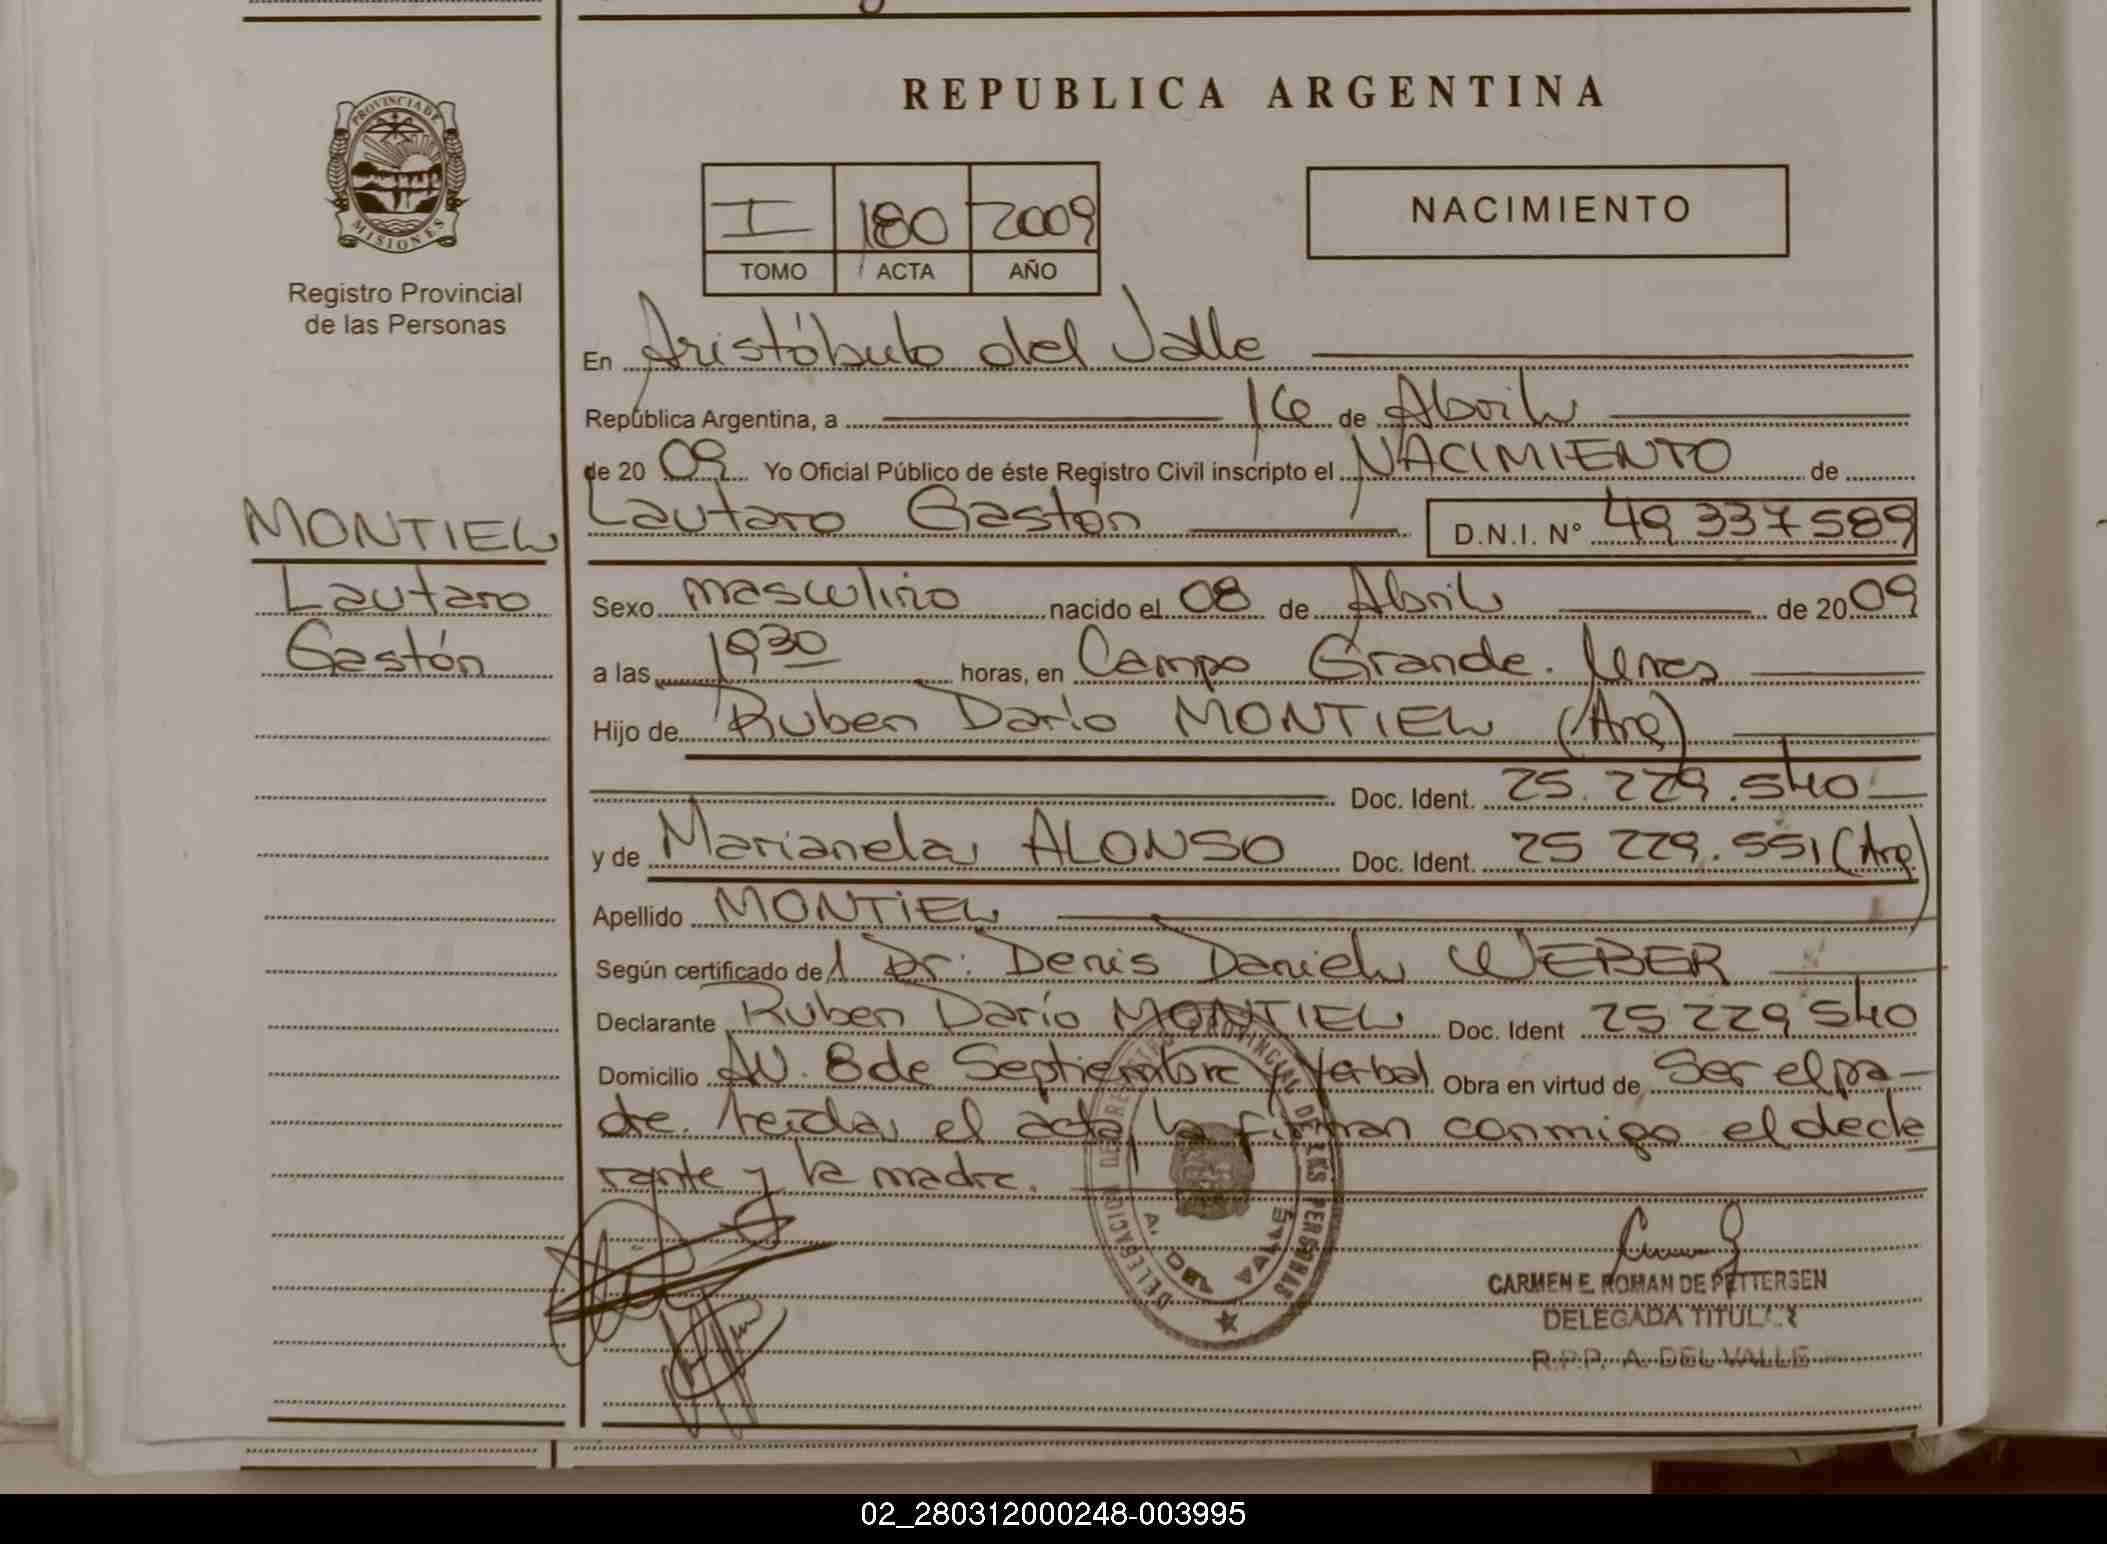 REPUBLICA ARGENTINA
PROVINCIA DE
MISIONES
Registro Provincial
de las Personas
I 180 2009
TOMO ACTA AÑO
NACIMIENTO
En Aristóbulo del Valle
República Argentina, a 16 de Abril
de 20 09 Yo Oficial Público de éste Registro Civil inscripto el NACIMIENTO de
MONTIEL
Lautaro Gastón D.N.I. N° 49 337 589
Lautaro
Sexo masculino nacido el 08 de Abril de 20 09
Gastón
a las 1930 horas, en Campo Grande. Mnes
Hijo de Ruben Darío MONTIEL (Arg)
Doc. Ident. 25.229.540
y de Marianela ALONSO Doc. Ident. 25 229.551 (Arg)
Apellido MONTIEL
Según certificado del Dr. Denis Daniel WEBER
Declarante Ruben Darío MONTIEL Doc. Ident 25 229 540
Domicilio AV. 8 de Septiembre y Yerbal Obra en virtud de Ser el pa-
dre. Leída el acta, la firman conmigo el decla
rante y la madre.
DELEGACION DE REGISTRO PROVINCIAL DE LAS PERSONAS
A. DEL VALLE
CARMEN E. ROMAN DE PETTERSEN
DELEGADA TITULAR
R.P.P. A. DEL VALLE
02_280312000248-003995